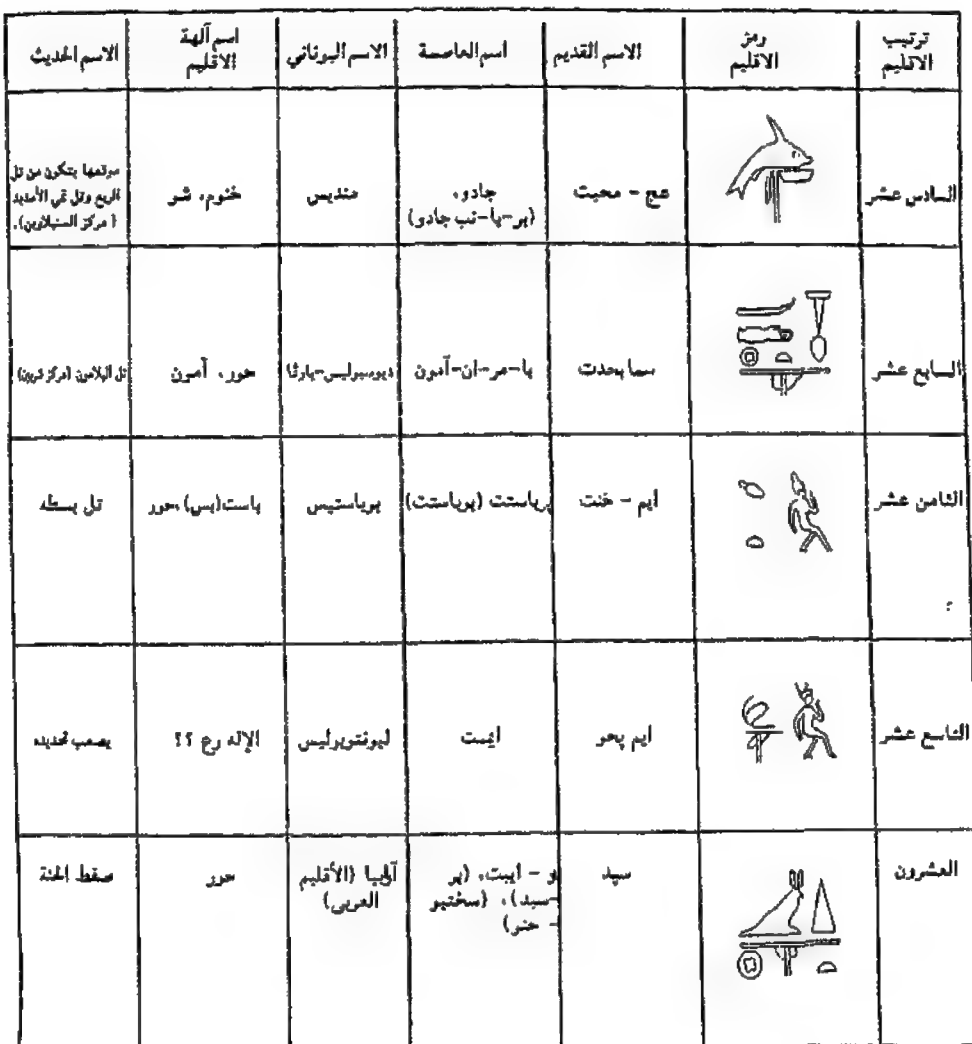 ترتيب الاقليم
رمز الاقليم
الاسم القديم
اسم العاصمة
الاسم اليوناني
اسم آلهة الاقليم
الاسم الحديث
السادس عشر
عج - محيت
جادو،
(بر-با-نب جادو)
منديس
خنوم، شو
موقعها يتكون من تل
الربع وتل تمي الأمديد
(مركز السنبلاوين).
السابع عشر
سما بحدت
با-مر-ان-آمون
ديوسبوليس-بارفا
حور، آمون
تل البلامون (مركز شربين)
الثامن عشر
ايم - خنت
برباستت (بوباستت)
بوباستيس
باست (بس)، حور
تل بسطه
التاسع عشر
ايم پحو
ايمت
ليونتوبوليس
الإله رع ؟؟
يصعب تحديده
العشرون
سپد
و - ايبت، (بر
-سبد)، (سختبو
- حنر)
آرابيا (الأقليم
العربى)
حور
صفط الحنة